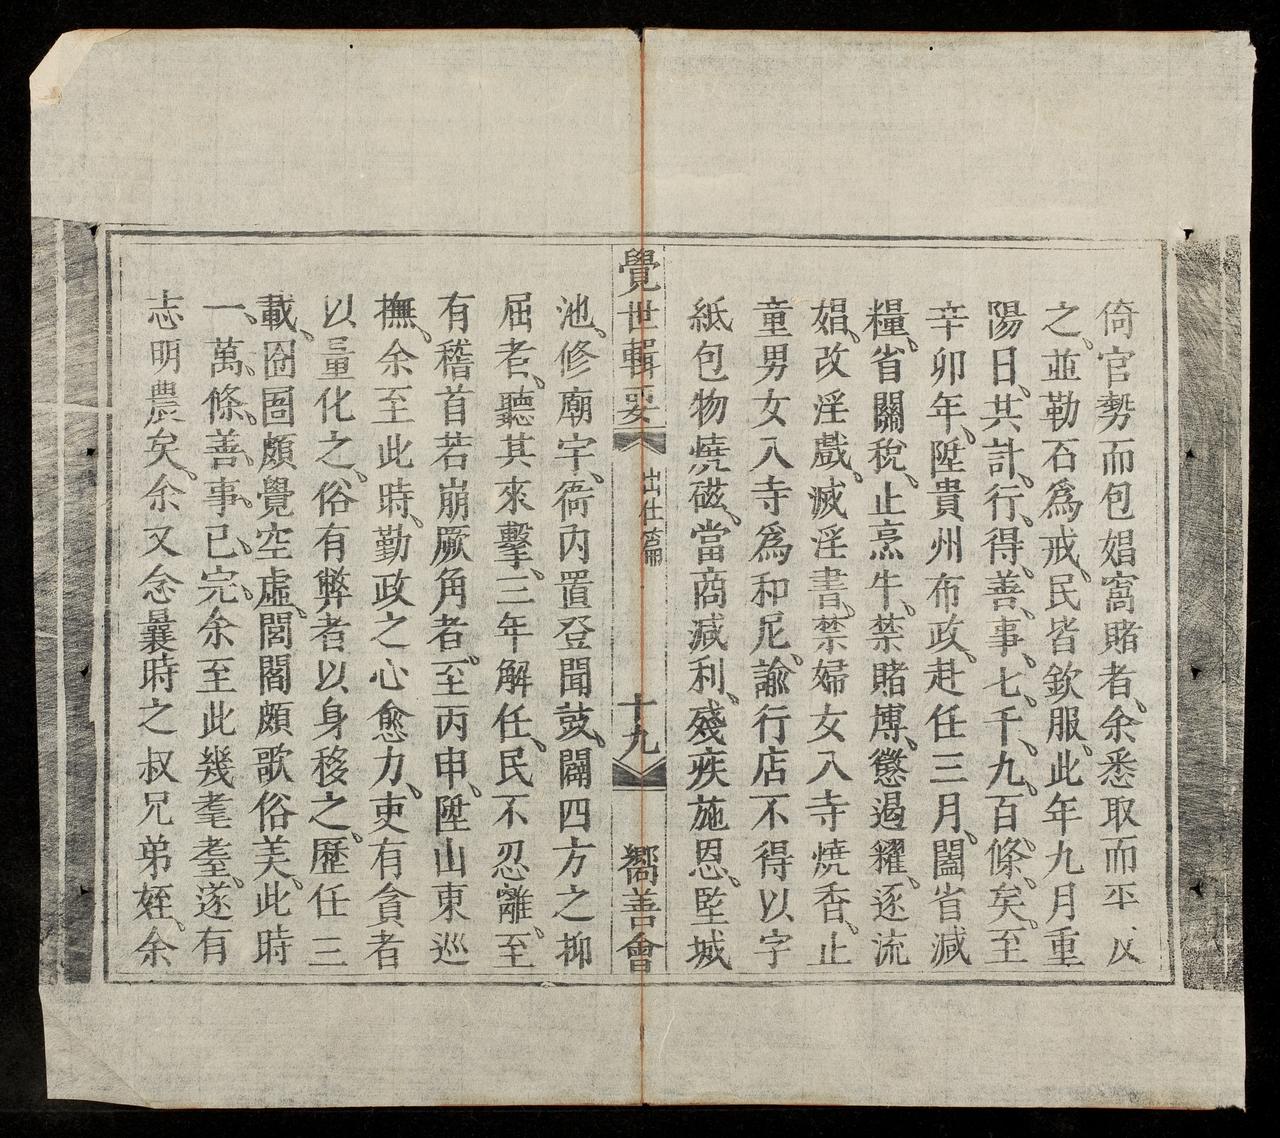 倚官勢而包娼窩賭者、余悉取而平反
之、並勒石爲戒、民皆欽服、此年九月重
陽日、共、計、行、得、善、事、七、千、九、百、條、矣、至
辛卯年、陞貴州布政、赴任三月、闔省減
糧、省關稅、止烹牛、禁賭博、懲遏糴、逐流
娼、改淫戲、滅淫書、禁婦女入寺燒香、止
童男女入寺爲和尼、諭行店不得以字
紙包物燒磁、當商減利、殘疾施恩、墾城
覺世輯要 出仕篇 十九 嚮善會
池、修廟宇、衙內置登聞鼓、闢四方之抑
屈者、聽其來擊、三年解任、民不忍離、至
有稽首若崩厥角者、至丙申、陞山東巡
撫、余至此時、勤政之心愈力、吏有貪者
以量化之、俗有弊者以身移之、歷任三
載、囹圄頗覺空虛、閭閻頗歌俗美、此時
一、萬、條、善、事、已、完、余至此幾耄耋、遂有
志明農矣、余又念曩時之叔兄弟姪、余